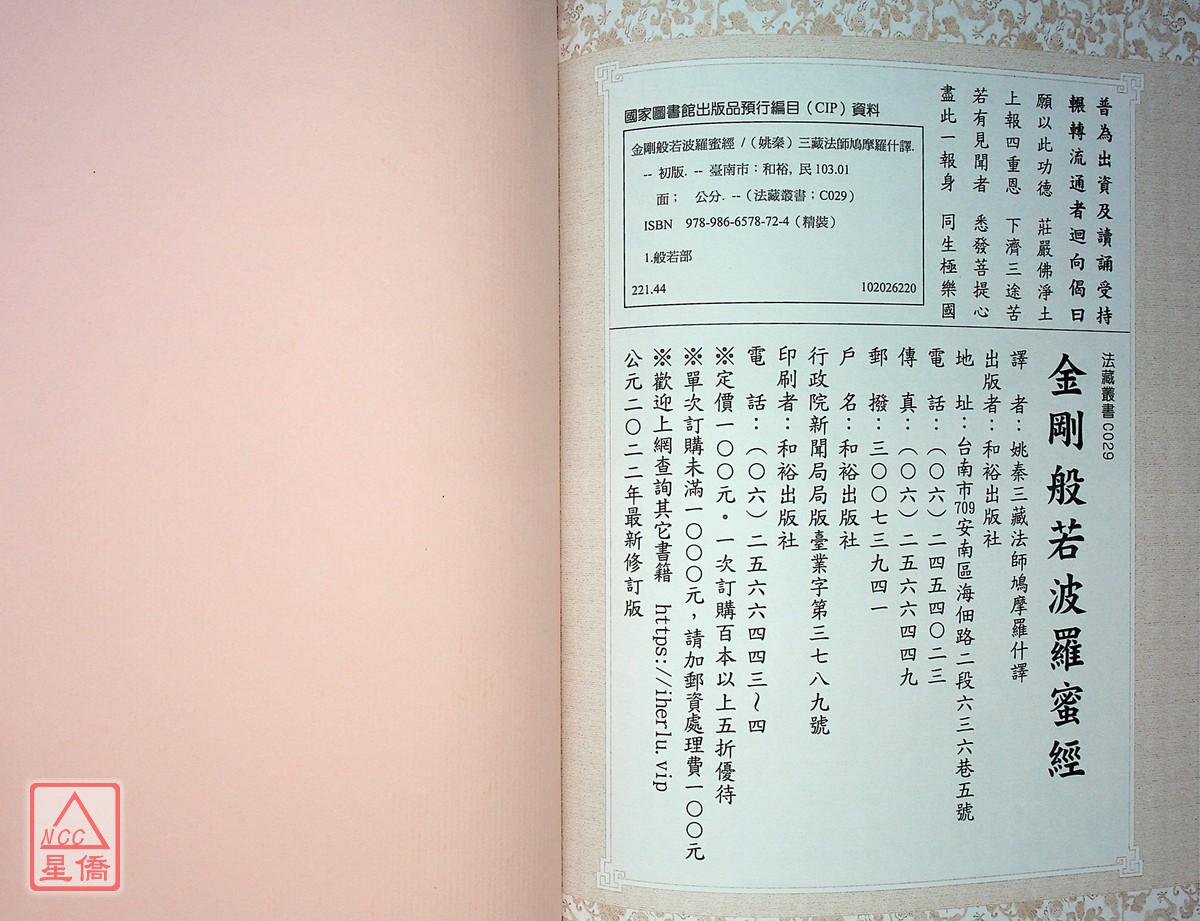 普為出資及讀誦受持
輾轉流通者迴向偈曰
願以此功德　莊嚴佛淨土
上報四重恩　下濟三途苦
若有見聞者　悉發菩提心
盡此一報身　同生極樂國
國家圖書館出版品預行編目（CIP）資料
金剛般若波羅蜜經 /（姚秦）三藏法師鳩摩羅什譯.
-- 初版. -- 臺南市：和裕, 民 103.01
面；　公分. --（法藏叢書；C029）
ISBN　978-986-6578-72-4（精裝）
1.般若部
221.44　102026220
法藏叢書C029
金剛般若波羅蜜經
譯　者：姚秦三藏法師鳩摩羅什譯
出版者：和裕出版社
地　址：台南市709安南區海佃路二段六三六巷五號
電　話：（〇六）二四五四〇二三
傳　真：（〇六）二五六六四四九
郵　撥：三〇〇七三九四一
戶　名：和裕出版社
行政院新聞局局版臺業字第三七八九號
印刷者：和裕出版社
電　話：（〇六）二五六六四四三～四
※定價一〇〇元。一次訂購百本以上五折優待
※單次訂購未滿一〇〇〇元，請加郵資處理費一〇〇元
※歡迎上網查詢其它書籍　https://iherlu.vip
公元二〇二二年最新修訂版
NCC
星僑